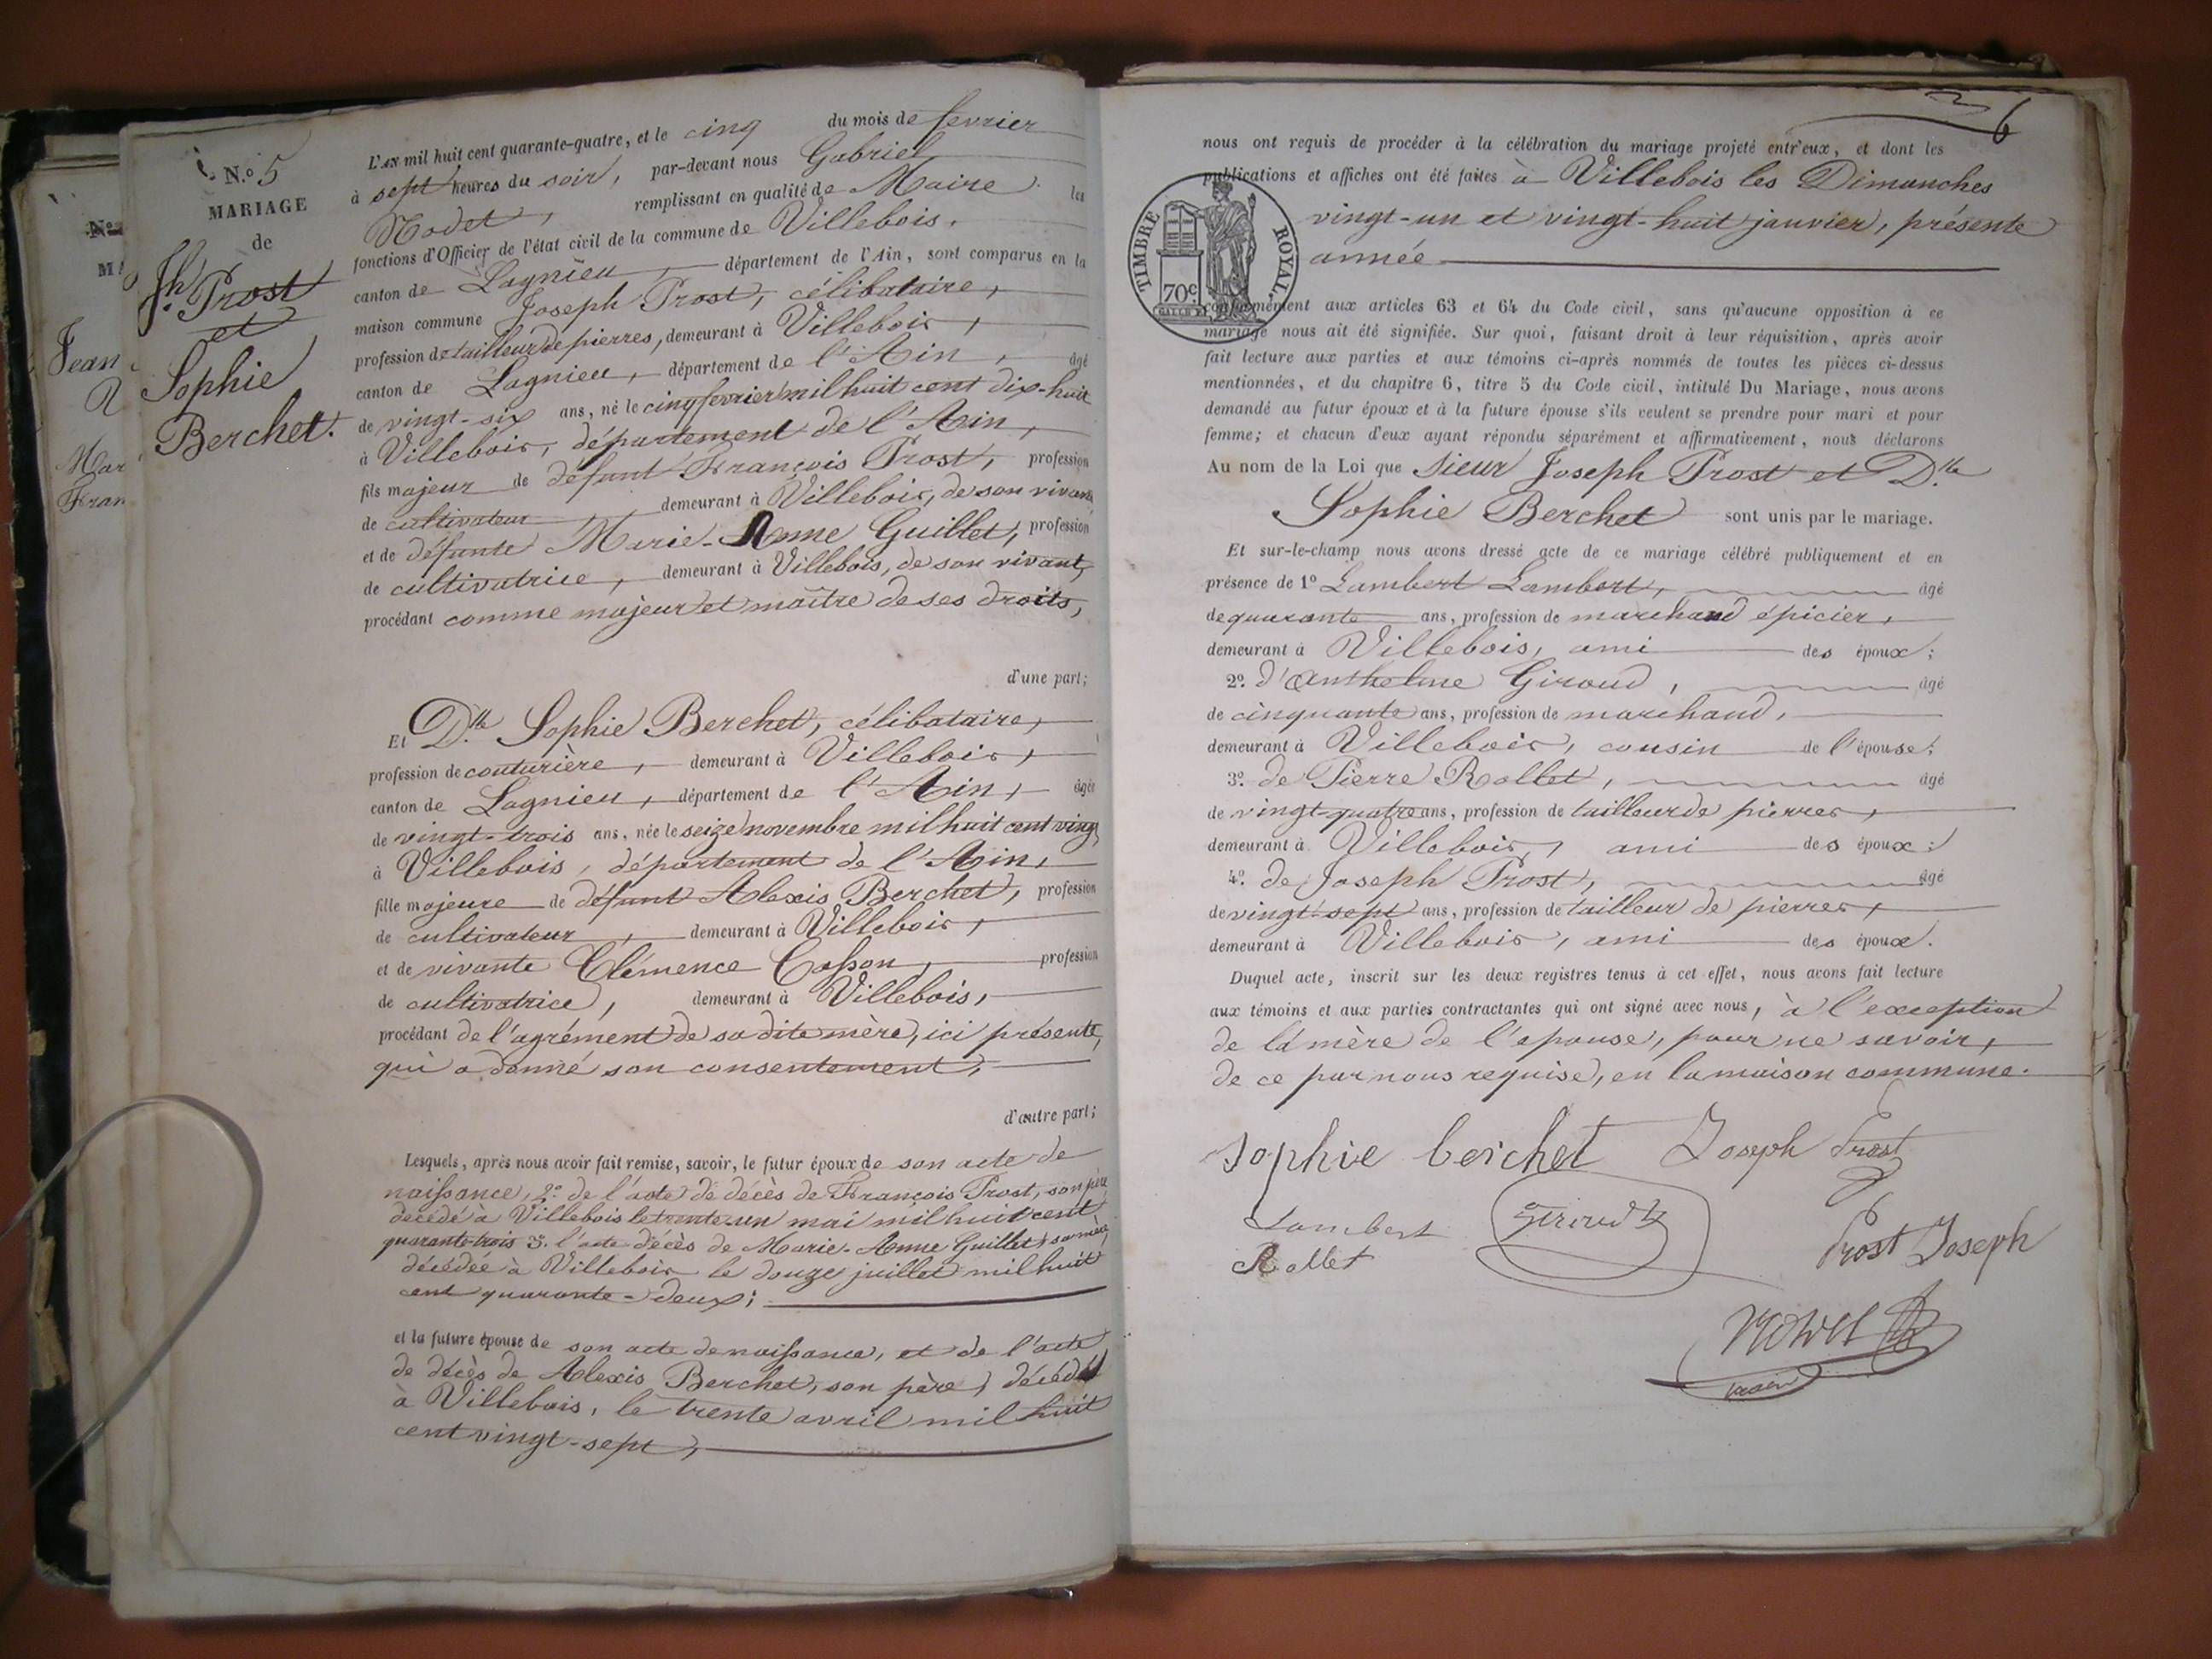 N.o 5
MARIAGE
de
Jh. Prost
et
Sophie
Berchet.
L'AN mil huit cent quarante-quatre, et le cinq du mois de fevrier
à sept heures du soir, par-devant nous Gabriel
Nodet, remplissant en qualité de Maire les
fonctions d'Officier de l'état civil de la commune de Villebois,
canton de Lagnieu, département de l'Ain, sont comparus en la
maison commune Joseph Prost, célibataire,
profession de tailleur de pierres, demeurant à Villebois,
canton de Lagnieu, département de l'Ain, âgé
de vingt-six ans, né le cinq fevrier mil huit cent dix-huit
à Villebois, département de l'Ain,
fils majeur de défunt François Prost, profession
de cultivateur, demeurant à Villebois, de son vivant,
et de défunte Marie-Anne Guillet, profession
de cultivatrice, demeurant à Villebois, de son vivant,
procédant comme majeur et maître de ses droits,
d'une part;
Et Dlle Sophie Berchet, célibataire,
profession de couturière, demeurant à Villebois,
canton de Lagnieu, département de l'Ain, âgée
de vingt-trois ans, née le seize novembre mil huit cent vingt
à Villebois, département de l'Ain,
fille majeure de défunt Alexis Berchet, profession
de cultivateur, demeurant à Villebois,
et de vivante Clémence Casson, profession
de cultivatrice, demeurant à Villebois,
procédant de l'agrément de sa dite mère, ici présente,
qui a donné son consentement,
d'autre part;
Lesquels, après nous avoir fait remise, savoir, le futur époux de son acte de
naissance, 2.o de l'acte de décès de François Prost, son père
décédé à Villebois le trente-un mai mil huit cent
quarante-trois 3.o l'acte décès de Marie-Anne Guillet, sa mère,
décédée à Villebois le douze juillet mil huit
cent quarante-deux;
et la future épouse de son acte de naissance, et de l'acte
de décès de Alexis Berchet, son père, décédé
à Villebois, le trente avril mil huit
cent vingt-sept,
6
nous ont requis de procéder à la célébration du mariage projeté entr'eux, et dont les
publications et affiches ont été faites à Villebois les Dimanches
vingt-un et vingt-huit janvier, présente
année
TIMBRE ROYAL
70c
conformément aux articles 63 et 64 du Code civil, sans qu'aucune opposition à ce
mariage nous ait été signifiée. Sur quoi, faisant droit à leur réquisition, après avoir
fait lecture aux parties et aux témoins ci-après nommés de toutes les pièces ci-dessus
mentionnées, et du chapitre 6, titre 5 du Code civil, intitulé Du Mariage, nous avons
demandé au futur époux et à la future épouse s'ils veulent se prendre pour mari et pour
femme; et chacun d'eux ayant répondu séparément et affirmativement, nous déclarons
Au nom de la Loi que Sieur Joseph Prost et Dlle
Sophie Berchet sont unis par le mariage.
Et sur-le-champ nous avons dressé acte de ce mariage célébré publiquement et en
présence de 1o Lambert Lambert, âgé
de quarante ans, profession de marchand épicier,
demeurant à Villebois, ami des époux;
2o. d'Anthelme Giroud, âgé
de cinquante ans, profession de marchand,
demeurant à Villebois, cousin de l'épouse;
3o. de Pierre Rollet, âgé
de vingt-quatre ans, profession de tailleur de pierres,
demeurant à Villebois, ami des époux;
4o. de Joseph Prost, âgé
de vingt-sept ans, profession de tailleur de pierres,
demeurant à Villebois, ami des époux.
Duquel acte, inscrit sur les deux registres tenus à cet effet, nous avons fait lecture
aux témoins et aux parties contractantes qui ont signé avec nous, à l'exception
de la mère de l'epouse, pour ne savoir,
de ce par nous requise, en la maison commune.
sophie berchet Joseph Prost
Lambert Giroud
Rollet Prost Joseph
Nodet
maire